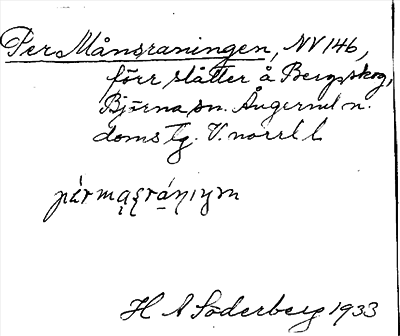 Per Månsraningen, NV 146,
förr slåtter å Bergsskog,
Björna sn. Ångerml n.
doms Tg. V. norrl l.
pärmąsrániŋm
H A Söderberg 1933